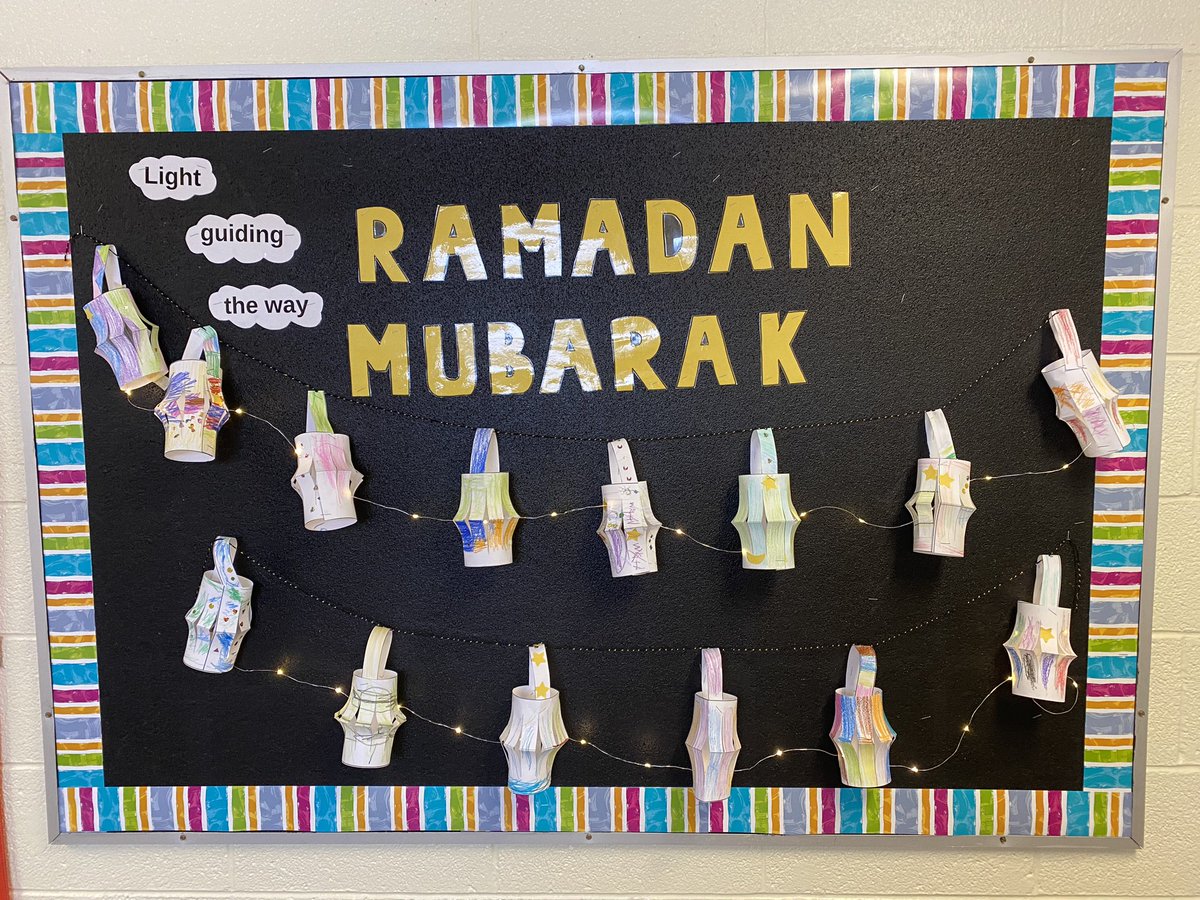 Light
guiding
the way
RAMADAN
MUBARAK